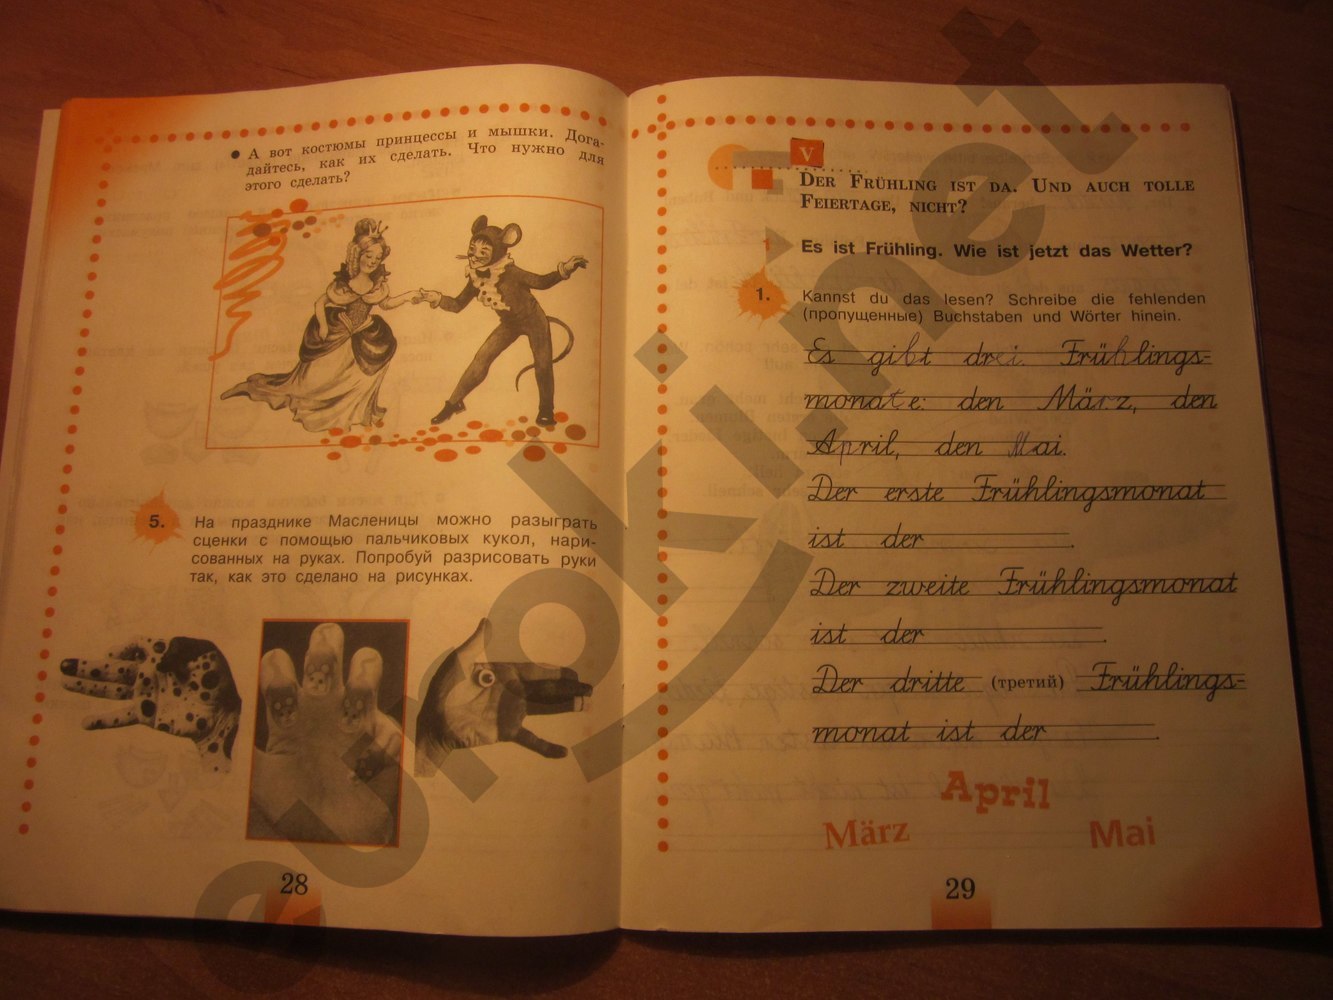 • А вот костюмы принцессы и мышки. Дога-
дайтесь, как их сделать. Что нужно для
этого сделать?
5. На празднике Масленицы можно разыграть
сценки с помощью пальчиковых кукол, нари-
сованных на руках. Попробуй разрисовать руки
так, как это сделано на рисунках.
28
V
Der Frühling ist da. Und auch tolle
Feiertage, nicht?
1 Es ist Frühling. Wie ist jetzt das Wetter?
1. Kannst du das lesen? Schreibe die fehlenden
(пропущенные) Buchstaben und Wörter hinein.
Es gibt drei Frühlings-
monate: den März, den
April, den Mai.
Der erste Frühlingsmonat
ist der .
Der zweite Frühlingsmonat
ist der .
Der dritte (третий) Frühlings-
monat ist der .
April
März Mai
29
euroki.net